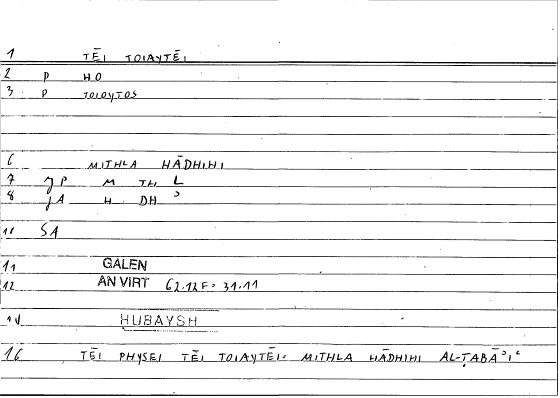 1 TĒI TOIAYTĒI
2 P HO
3 P TOIOYTOS
6 MITHLA HĀDHIHI
7 JP M TH L
8 JA H DH ʾ
10 SA
11 GALEN
12 AN VIRT 62.12F = 31.11
14 HUBAYSH
16 TĒI PHYSEI TĒI TOIAYTĒI = MITHLA HĀDHIHI AL-ṬABĀʾIʿ